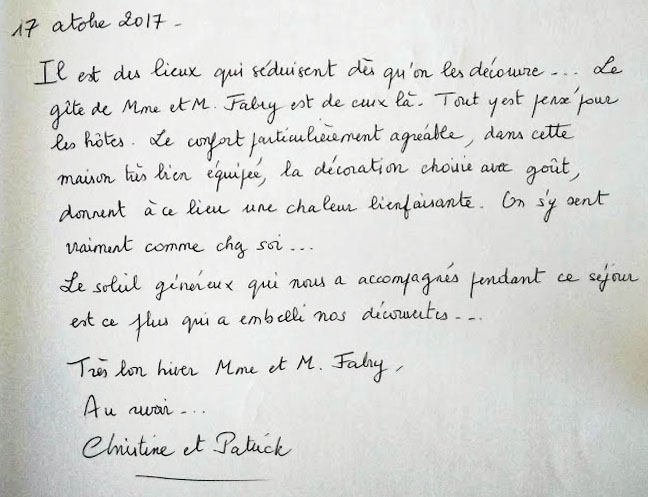 17 octobre 2017 -
Il est des lieux qui séduisent dès qu'on les découvre... Le
gîte de Mme et M. Fabry est de ceux là. Tout y est pensé pour
les hôtes. Le confort particulièrement agréable, dans cette
maison très bien équipée, la décoration choisie avec goût,
donnent à ce lieu une chaleur bienfaisante. On s'y sent
vraiment comme chez soi...
Le soleil généreux qui nous a accompagnés pendant ce séjour
est ce plus qui a embelli nos découvertes...
Très bon hiver Mme et M. Fabry,
Au revoir...
Christine et Patrick